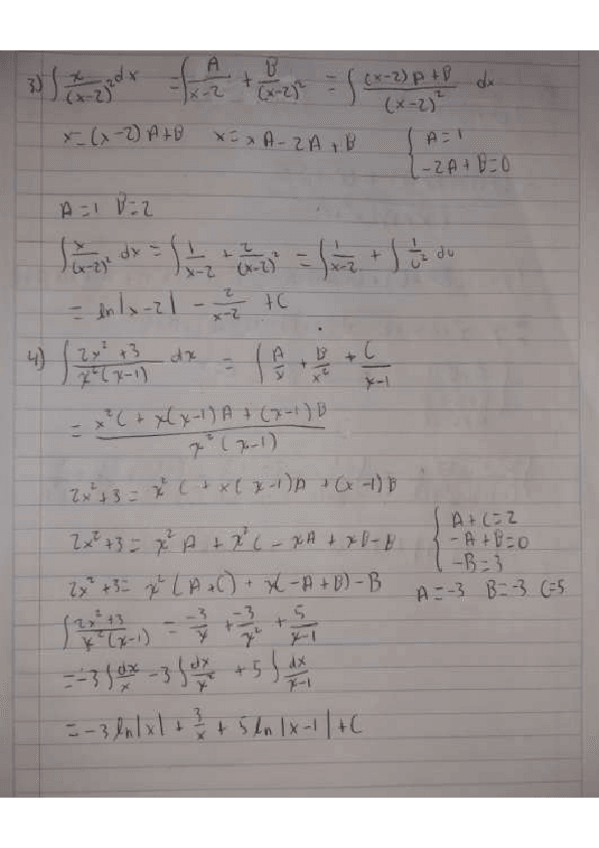 3) ∫ x/(x-2)² dx = ∫ A/(x-2) + B/(x-2)² = ∫ ((x-2)A+B)/(x-2)² dx
x=(x-2)A+B x=xA-2A+B { A=1
-2A+B=0
A=1 B=2
∫ x/(x-2)² dx = ∫ 1/(x-2) + 2/(x-2)² = ∫ 1/(x-2) + ∫ 1/u² du
= ln|x-2| - 2/(x-2) +C
4) ∫ (2x²+3)/(x²(x-1)) dx = ∫ A/x + B/x² + C/(x-1)
= (x²C + x(x-1)A + (x-1)B)/(x²(x-1))
2x²+3 = x²C + x(x-1)A + (x-1)B
2x²+3 = x²A + x²C - xA + xB-B { A+C=2
-A+B=0
-B=3
2x²+3= x²(A+C) + x(-A+B)-B A=-3 B=-3 C=5
∫ (2x²+3)/(x²(x-1)) = -3/x + -3/x² + 5/(x-1)
= -3∫ dx/x -3∫ dx/x² +5∫ dx/(x-1)
= -3 ln|x| + 3/x + 5 ln|x-1| +C